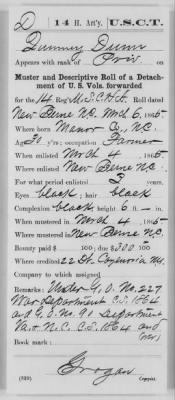 D 14 H. Art'y. U.S.C.T.
Dunn
Appears with rank of Priv. on
Muster and Descriptive Roll of a Detachment
of U. S. Vols. forwarded
for the 14 Reg't U.S.C.H.A. Roll dated
New Berne N.C. Mch 6, 1865
Where born Co., N.C.
Age y'rs; occupation Farmer
When enlisted Mch 4, 1865
Where enlisted New Berne N.C.
For what period enlisted years
Eyes black, hair black
Complexion black, height 6 ft. — in.
When mustered in Mch 4, 1865
Where mustered in New Berne N.C.
Bounty paid $ 100; due $300 100
Where credited 22 Dt.
Company to which assigned
Remarks: Under G.O. No. 227
War Department C.S. 1864
and G.O. No. 90 Department
Va. & N.C. C.S. 1864 and
(over)
Book mark:
Grogan
(339) Copyist.